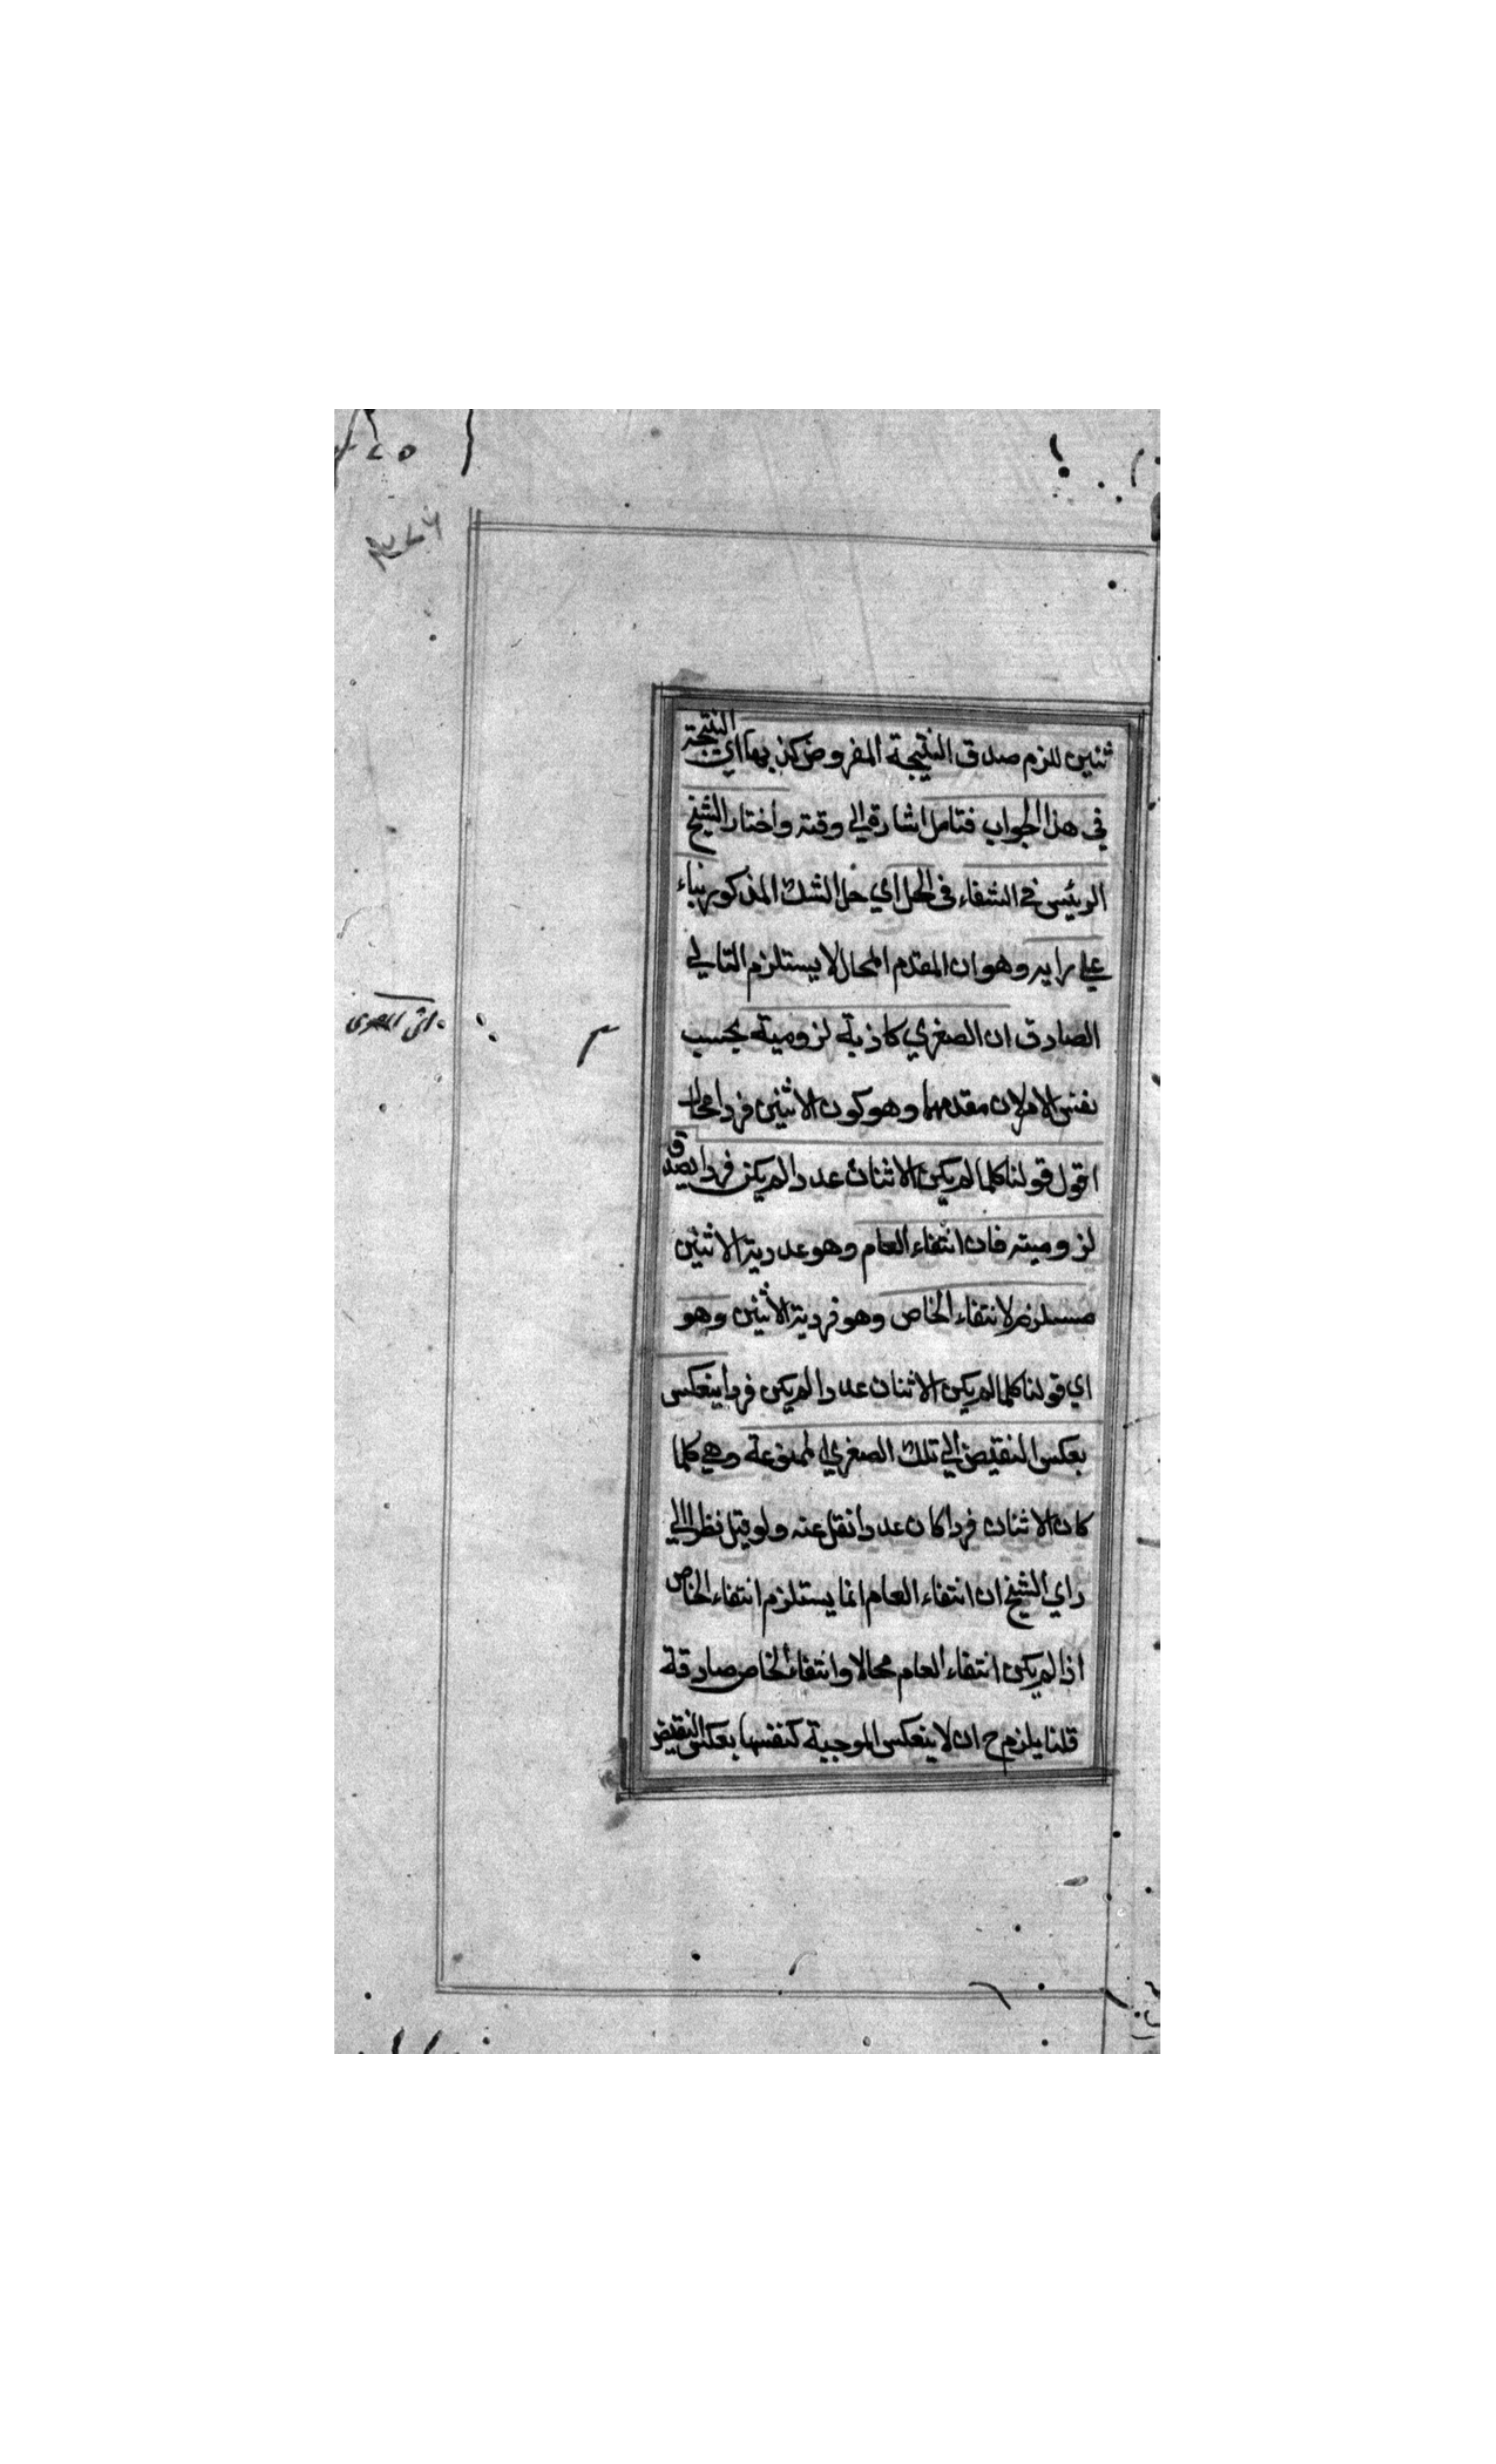 ثنين للزم صدق النتيجة المفروض كذبها اي النتيجة
في هذا الجواب فتامل اشارة الي وقته واختار الشيخ
الرئيس في الشفاء في الحل اي حل الشك المذكور بناء
علي رايه وهو ان المقدم المحال لا يستلزم التالي
الصادق ان الصغري كاذبة لزومية بحسب
نفس الامر لان مقدمها وهو كون الاثنين فردا محال
اقول قولنا كلما لم يكن الاثنان عددا لم يكن فردا يصدق
لزوميته فان انتفاء العام وهو عددية الاثنين
مستلزم لانتفاء الخاص وهو فردية الاثنين وهو
اي قولنا كلما لم يكن الاثنان عددا لم يكن فردا ينعكس
بعكس النقيض الي تلك الصغري الممنوعة وهي كلما
كان الاثنان فردا كان عددا نقل عنه ولو قيل نظرا الي
راي الشيخ ان انتفاء العام انما يستلزم انتفاء الخاص
اذا لم يكن انتفاء العام محالا وانتفاء الخاص صادقة
قلنا يلزم ح ان لا ينعكس الموجبة كنفسها بعكس النقيض